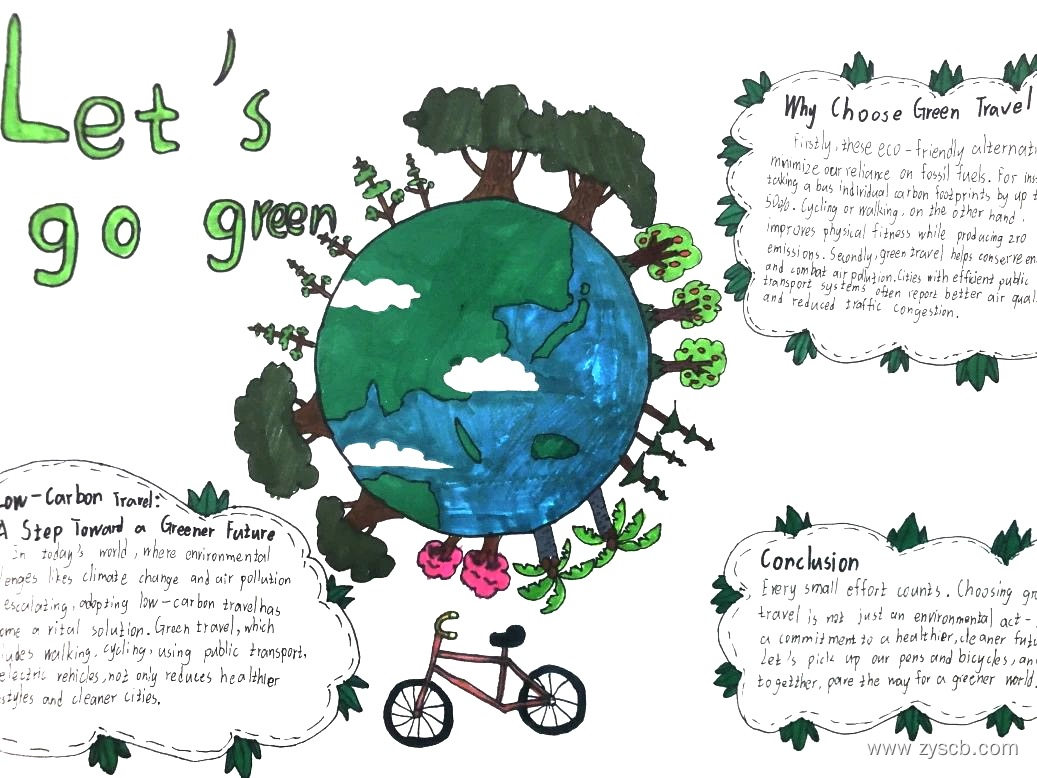 Let's
go green
Why Choose Green Travel
Firstly, these eco-friendly alternati
minimize our reliance on fossil fuels. For ins
taking a bus individual carbon footprints by up t
50%. Cycling or walking, on the other hand,
improves physical fitness while producing zro
emissions. Secondly, green travel helps conserve en
and combat air pollution. Cities with efficient public
transport systems often report better air qual
and reduced traffic congestion.
Low-Carbon Travel:
A Step Toward a Greener Future
In today's world, where environmental
lenges likes climate change and air pollution
escalating, adopting low-carbon travel has
ome a vital solution. Green travel, which
ludes walking, cycling, using public transport,
electric vehicles, not only reduces healthier
styles and cleaner cities.
Conclusion
Every small effort counts. Choosing gr
travel is not just an environmental act-
a commitment to a healthier, cleaner futu
Let's pick up our pens and bicycles, an
togetther, pave the way for a greener world.
www.zyscb.com